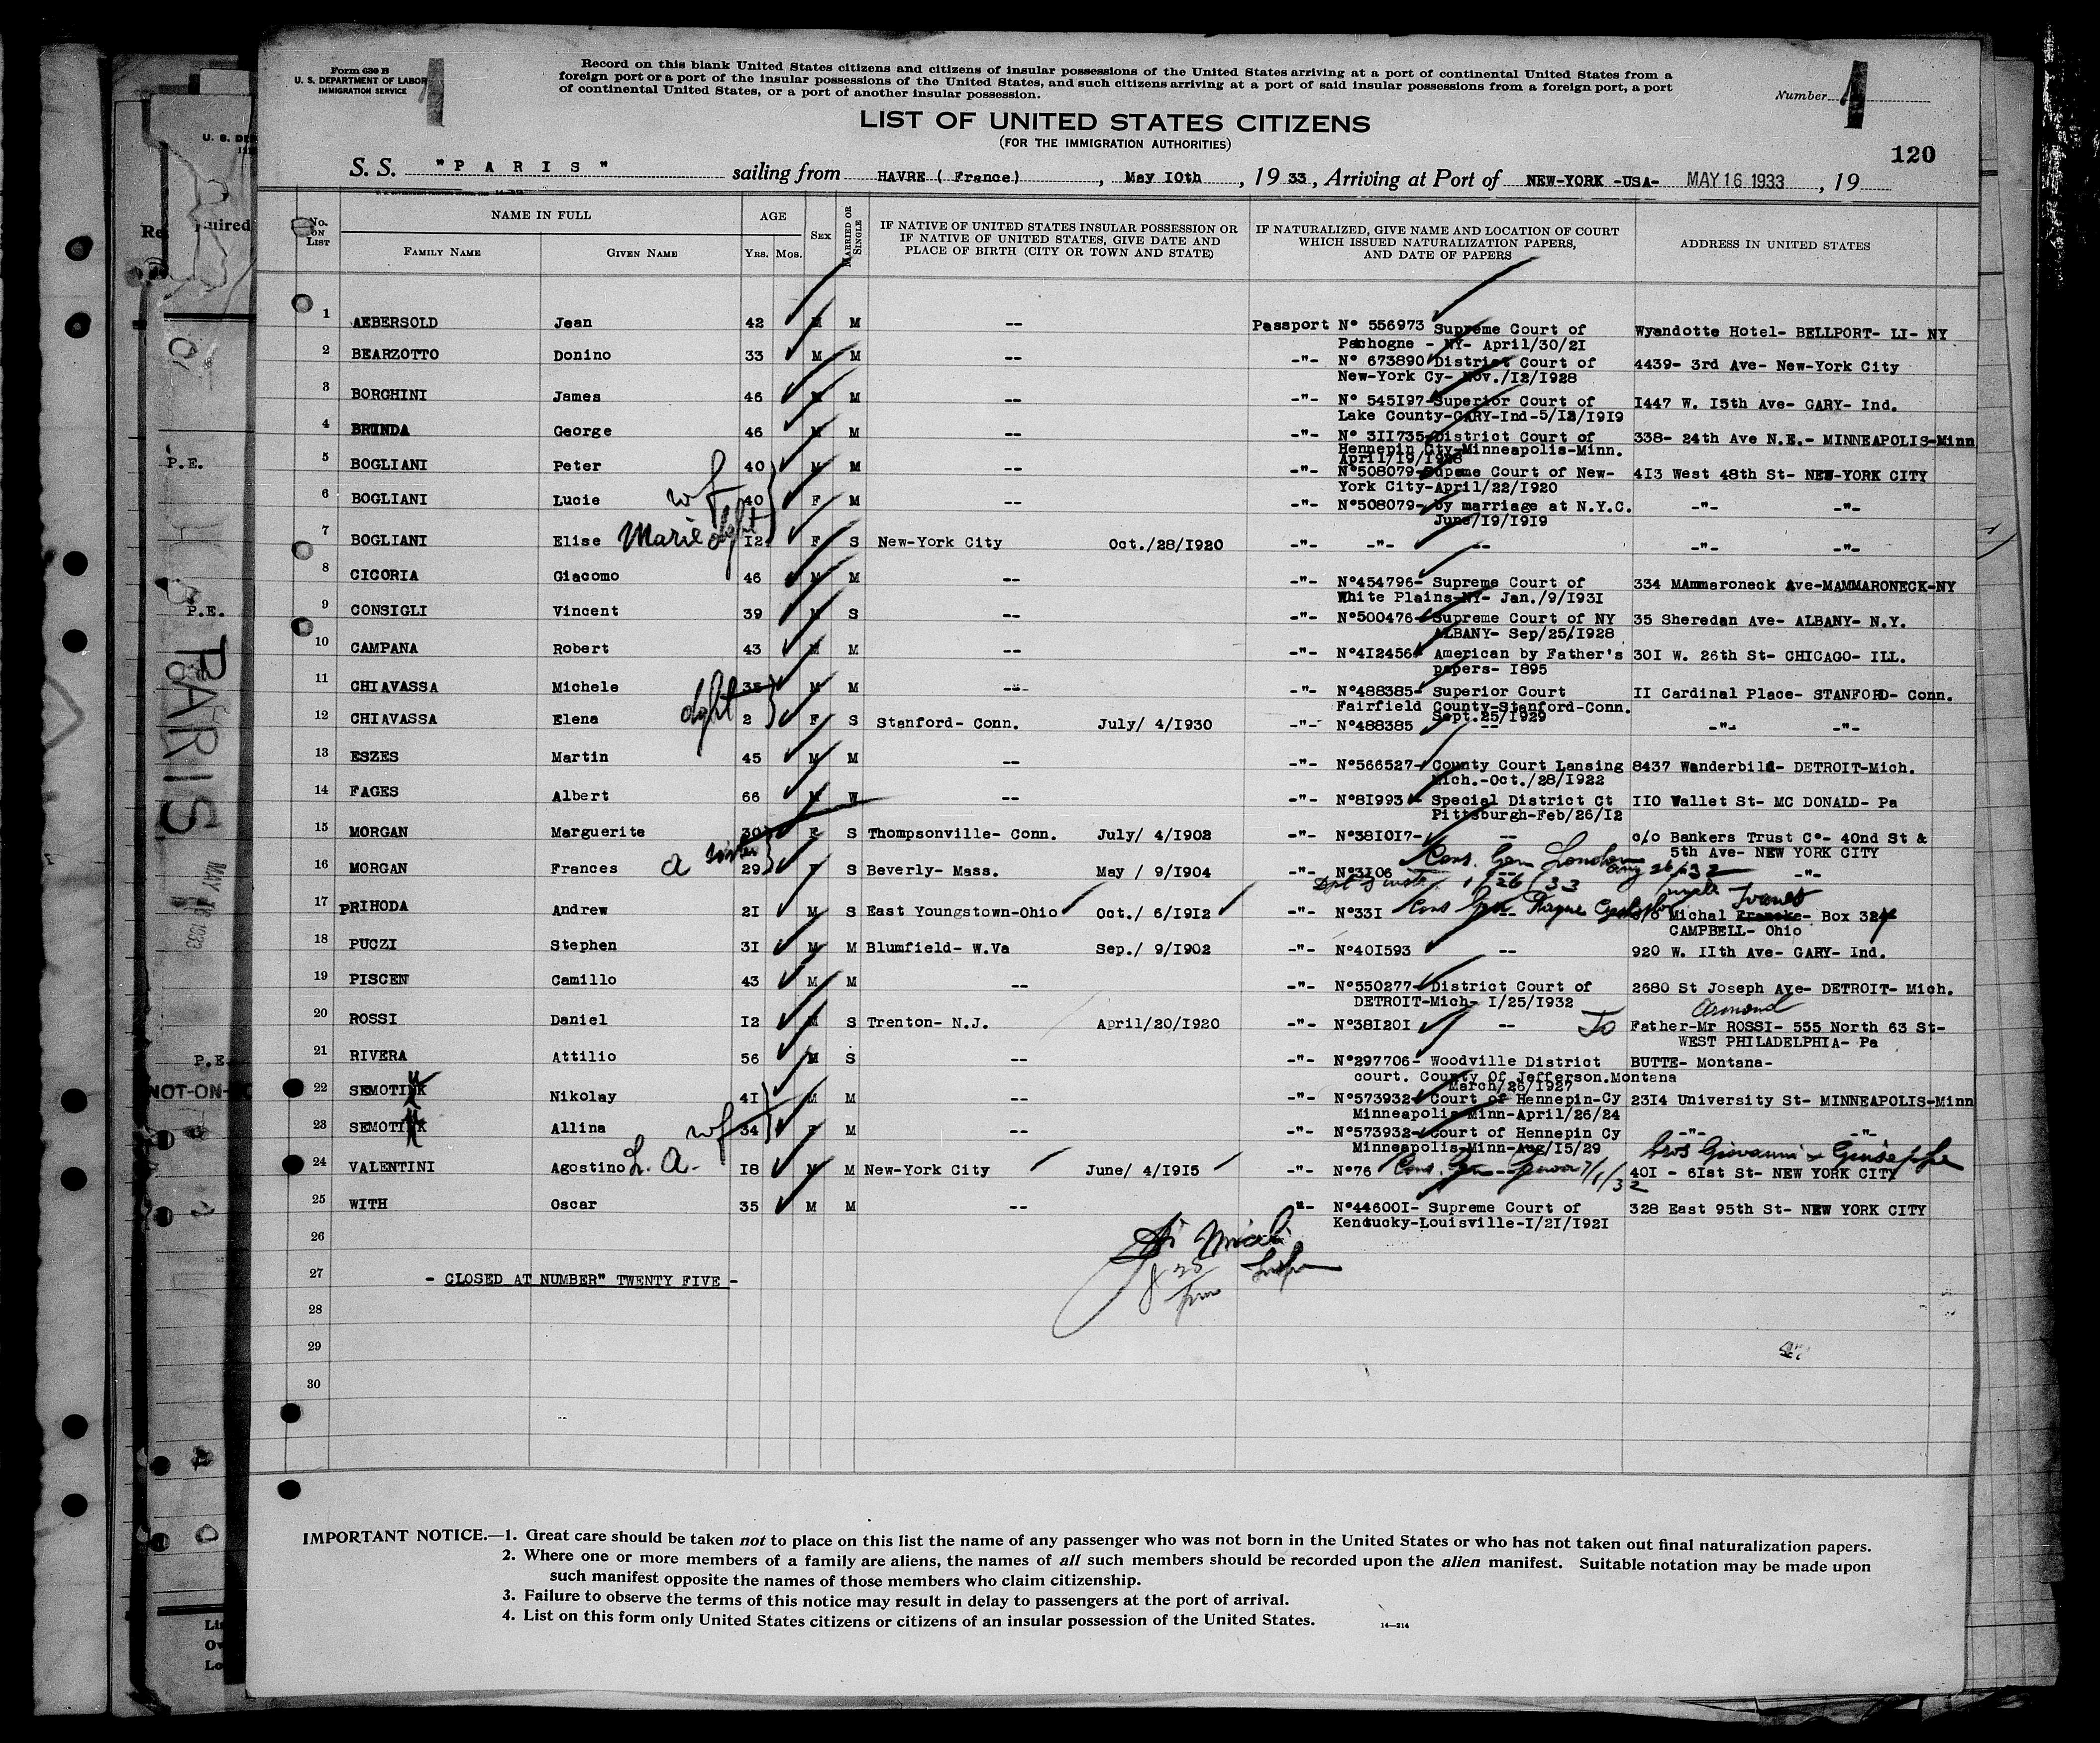 Form 630 B
U. S. DEPARTMENT OF LABOR
IMMIGRATION SERVICE
Record on this blank United States citizens and citizens of insular possessions of the United States arriving at a port of continental United States from a
foreign port or a port of the insular possessions of the United States, and such citizens arriving at a port of said insular possessions from a foreign port, a port
of continental United States, or a port of another insular possession.
Number 1
LIST OF UNITED STATES CITIZENS
(FOR THE IMMIGRATION AUTHORITIES)
120
S. S. "P A R I S" sailing from HAVRE ( France) , May 10th , 19 33 , Arriving at Port of NEW-YORK -USA- MAY 16 1933 , 19
No. ON LIST
NAME IN FULL
FAMILY NAME GIVEN NAME
AGE
YRS. MOS.
SEX
MARRIED OR SINGLE
IF NATIVE OF UNITED STATES INSULAR POSSESSION OR
IF NATIVE OF UNITED STATES, GIVE DATE AND
PLACE OF BIRTH (CITY OR TOWN AND STATE)
IF NATURALIZED, GIVE NAME AND LOCATION OF COURT
WHICH ISSUED NATURALIZATION PAPERS,
AND DATE OF PAPERS
ADDRESS IN UNITED STATES
1 AEBERSOLD Jean 42 M M -- Passport N° 556973 Supreme Court of Wyandotte Hotel- BELLPORT- LI- NY
Pachogne - NY- April/30/2I
2 BEARZOTTO Donino 33 M M -- -"- N° 673890 District Court of 4439- 3rd Ave- New-York City
New-York Cy- Nov./I2/I928
3 BORGHINI James 46 M M -- -"- N° 545I97-Superior Court of I447 W. I5th Ave- GARY- Ind.
Lake County-GARY-Ind-5/I2/I9I9
4 BRUNDA George 46 M M -- -"- N° 3II735-District Court of 338- 24th Ave N.E.- MINNEAPOLIS-Minn
Hennepin Cty-Minneapolis-Minn.
April/I9/I928
5 BOGLIANI Peter 40 M M -- -"- N°508079-Supeme Court of New- 4I3 West 48th St- NEW-YORK CITY
York City-April/22/I920
6 BOGLIANI Lucie wf 40 F M -- -"- N°508079- by marriage at N.Y.C. -"- -"-
June/I9/I9I9
7 BOGLIANI Elise Marie dght I2 F S New-York City Oct./28/I920 -"- -"- -- -"- -"-
8 CICORIA Giacomo 46 M M -- -"- N°454796- Supreme Court of 334 MAmmaroneck Ave-MAMMARONECK-NY
White Plains-NY- Jan./9/I93I
9 CONSIGLI Vincent 39 M S -- -"- N°500476- Supreme Court of NY 35 Sheredan Ave- ALBANY- N.Y.
ALBANY- Sep/25/I928
10 CAMPANA Robert 43 M M -- -"- N°4I2456 American by Father's 30I W. 26th St- CHICAGO- ILL.
papers- I895
11 CHIAVASSA Michele 35 M M -- -"- N°488385- Superior Court II Cardinal Place- STANFORD- Conn.
Fairfield County-Stanford-Conn.
Sept.25/I929
12 CHIAVASSA Elena dght 2 F S Stanford- Conn. July/ 4/I930 -"- N°488385 -- -"- -"-
13 ESZES Martin 45 M M -- -"- N°566527- County Court Lansing 8437 Wanderbild- DETROIT-Mich.
Mich.-Oct./28/I922
14 FAGES Albert 66 M W -- -"- N°8I993 - Special District Ct II0 Wallet St- MC DONALD- Pa
Pittsburgh-Feb/26/I2
15 MORGAN Marguerite 30 F S Thompsonville- Conn. July/ 4/I902 -"- N°38I0I7- -- c/o Bankers Trust C°- 40nd St &
5th Ave- NEW YORK CITY
16 MORGAN Frances a sister 29 F S Beverly- Mass. May / 9/I904 -"- N°3I06 Cons. Gen London Aug 26/32 -"-
1/26/33
17 PRIHODA Andrew 2I M S East Youngstown-Ohio Oct./ 6/I9I2 -"- N°33I Cons Gen Prague c/o Michal Box 324
CAMPBELL- Ohio
18 PUCZI Stephen 3I M M Blumfield- W.Va Sep./ 9/I902 -"- N°40I593 -- 920 W. IIth Ave- GARY- Ind.
19 PISCEN Camillo 43 M M -- -"- N°550277- District Court of 2680 St Joseph Ave- DETROIT- Mich.
DETROIT-Mich- I/25/I932
20 ROSSI Daniel I2 M S Trenton- N.J. April/20/I920 -"- N°38I20I -- To Armond
Father-Mr ROSSI- 555 North 63 St-
WEST PHILADELPHIA- Pa
21 RIVERA Attilio 56 M S -- -"- N°297706- Woodville District BUTTE- Montana-
court. County Of Jefferson.Montana
March/26/I927
22 SEMOTIUK Nikolay 4I M M -- -"- N°573932- Court of Hennepin-Cy 23I4 University St- MINNEAPOLIS-Minn
Minneapolis-Minn-April/26/24
23 SEMOTIUK Allina wf 34 F M -- -"- N°573932- Court of Hennepin Cy -"- -"-
Minneapolis-Minn-Aug/I5/29
24 VALENTINI Agostino L. A. I8 M M New-York City June/ 4/I9I5 -"- N°76 Cons. Gen Genoa 7/1/32 bros Giovanni & Giuseppe
40I - 6Ist St- NEW YORK CITY
25 WITH Oscar 35 M M -- "- N°44600I- Supreme Court of 328 East 95th St- NEW YORK CITY
Kentucky-Louisville-I/2I/I92I
26
27 - CLOSED AT NUMBER" TWENTY FIVE -
28
29
30
IMPORTANT NOTICE.—1. Great care should be taken not to place on this list the name of any passenger who was not born in the United States or who has not taken out final naturalization papers.
2. Where one or more members of a family are aliens, the names of all such members should be recorded upon the alien manifest. Suitable notation may be made upon
such manifest opposite the names of those members who claim citizenship.
3. Failure to observe the terms of this notice may result in delay to passengers at the port of arrival.
4. List on this form only United States citizens or citizens of an insular possession of the United States.
14—214
P.E.
P.E.
PARIS
MAY 16 1933
P.E.
NOT-ON-